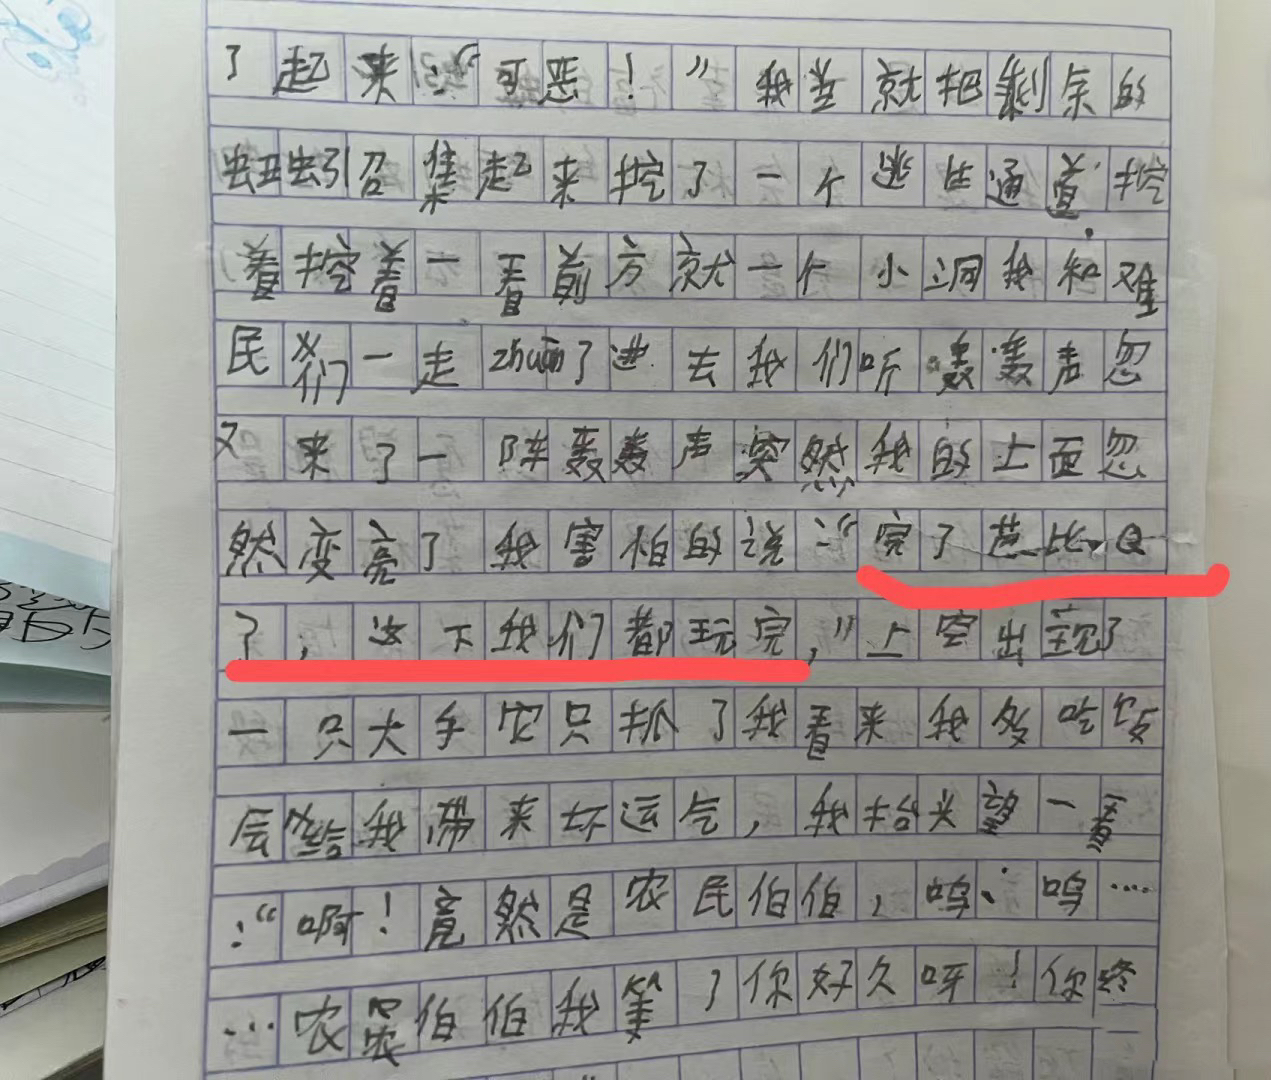 了起来：“可恶！”我当就把剩余的
蚯蚓召集起来挖了一个逃生通道，挖
着挖着一看前方就一个小洞我和难
民们一走zhuān了进去我们听轰轰声忽
又来了一阵轰轰声突然我的上面忽
然变亮了我害怕的说：“完了芭比Q
了，这下我们都玩完，”上空出现了
一只大手它只抓了我看来我多吃饭
会给我带来坏运气，我抬头望一看
：“啊！竟然是农民伯伯，呜、呜…
…农民伯伯我等了你好久呀！你终